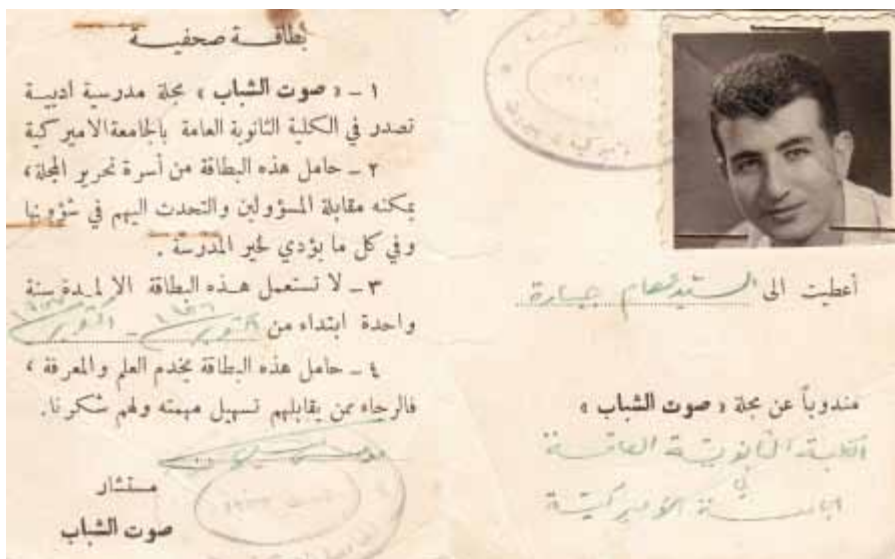 بطاقة صحفية
١ - « صوت الشباب » مجلة مدرسية ادبية
تصدر في الكلية الثانوية العامة بالجامعة الاميركية
٢ - حامل هذه البطاقة من أسرة تحرير المجلة،
يمكنه مقابلة المسؤولين والتحدث اليهم في شؤونها
وفي كل ما يؤدي لخير المدرسة .
٣ - لا تستعمل هذه البطاقة الا لمدة سنة
واحدة ابتداء من اكتوبر - اكتوبر
٤ - حامل هذه البطاقة يخدم العلم والمعرفة ،
فالرجاء ممن يقابلهم تسهيل مهمته ولهم شكرنا.
مستشار
صوت الشباب
أعطيت الى السيد جبارة
مندوباً عن مجلة « صوت الشباب »
الكلية الثانوية العامة
في
الجامعة الاميركية